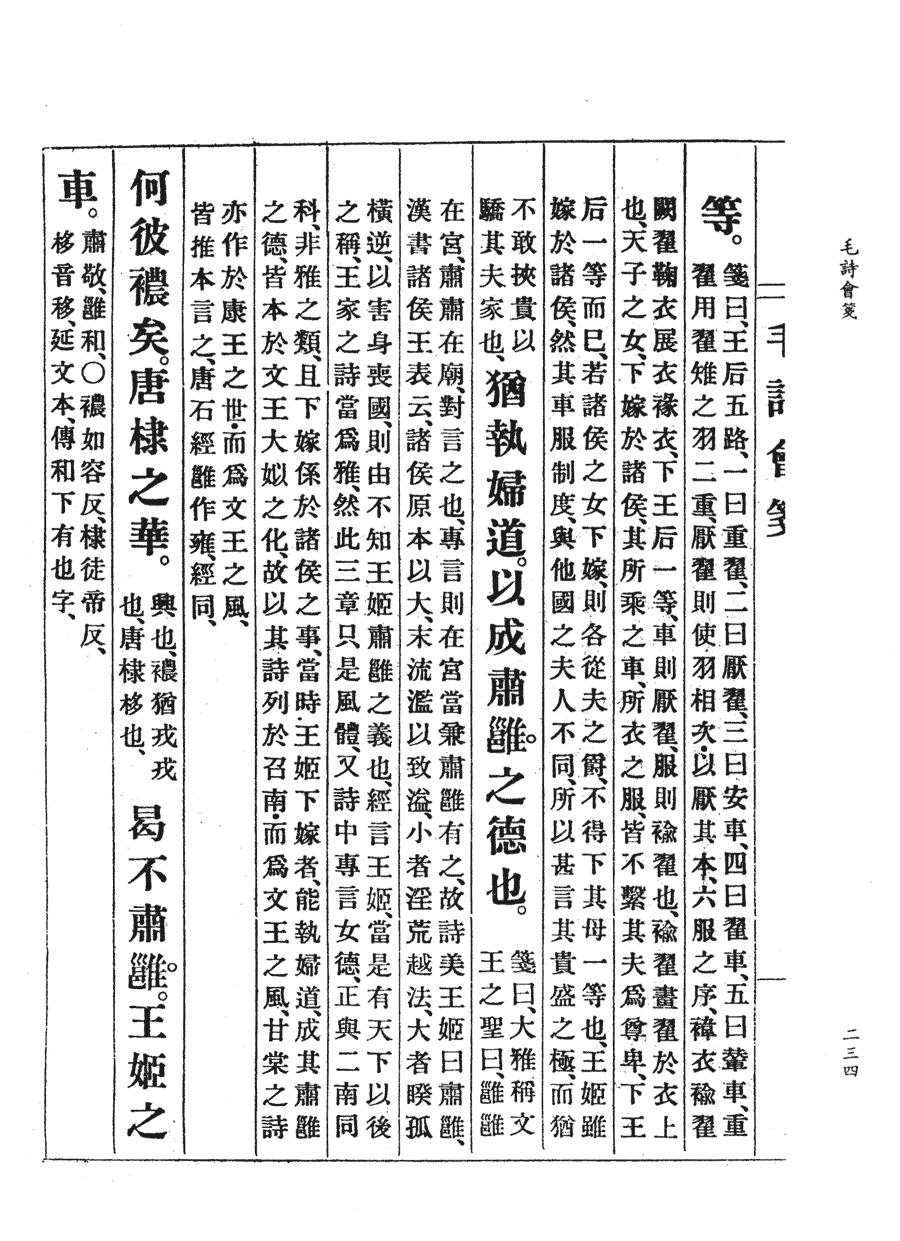 毛詩會箋
二三四
毛詩會箋
等。箋曰、王后五路、一曰重翟、二曰厭翟、三曰安車、四曰翟車、五曰輦車、重
翟用翟雉之羽二重、厭翟則使羽相次、以厭其本、六服之序、褘衣褕翟
闕翟鞠衣展衣褖衣、下王后一等、車則厭翟、服則褕翟也、褕翟畫翟於衣上
也、天子之女、下嫁於諸侯、其所乘之車、所衣之服、皆不繫其夫爲尊卑、下王
后一等而已、若諸侯之女下嫁、則各從夫之爵、不得下其母一等也、王姬雖
嫁於諸侯、然其車服制度、與他國之夫人不同、所以甚言其貴盛之極、而猶
不敢挾貴以
驕其夫家也、
猶執婦道。以成肅雝。之德也。
箋曰、大雅稱文
王之聖曰、雝雝
在宮、肅肅在廟、對言之也、專言則在宮當兼肅雝有之、故詩美王姬曰肅雝、
漢書諸侯王表云、諸侯原本以大、末流濫以致溢、小者淫荒越法、大者睽孤
橫逆、以害身喪國、則由不知王姬肅雝之義也、經言王姬、當是有天下以後
之稱、王家之詩當爲雅、然此三章只是風體、又詩中專言女德、正與二南同
科、非雅之類、且下嫁係於諸侯之事、當時王姬下嫁者、能執婦道、成其肅雝
之德、皆本於文王大姒之化、故以其詩列於召南、而爲文王之風、甘棠之詩
亦作於康王之世、而爲文王之風、
皆推本言之、唐石經雝作雍、經同、
何彼襛矣。唐棣之華。
興也、襛猶戎戎
也、唐棣栘也、
曷不肅雝。王姬之
車。
肅敬、雝和、〇襛如容反、棣徒帝反、
栘音移、延文本、傳和下有也字、